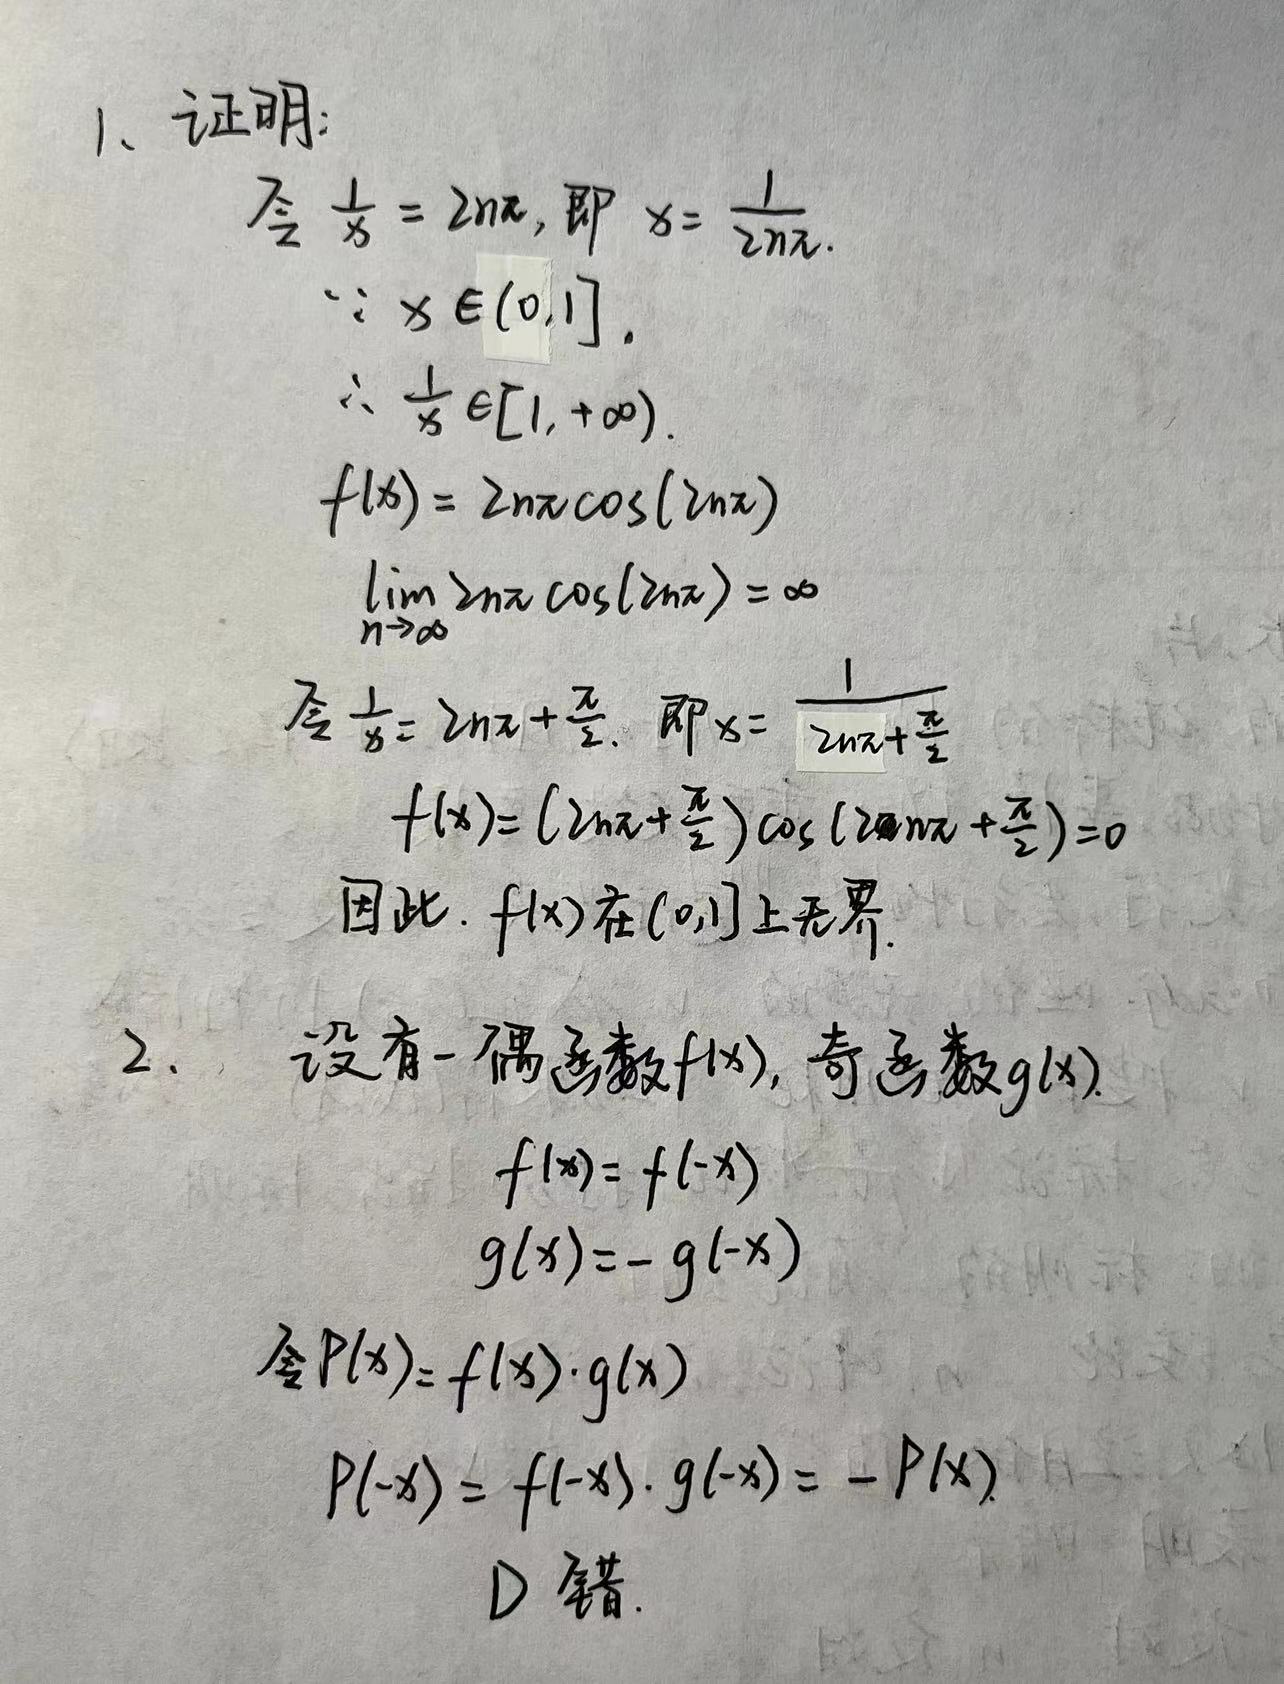 1、证明:
令 1/x = 2nπ, 即 x = 1/2nπ.
∵ x ∈ (0,1].
∴ 1/x ∈ [1, +∞).
f(x) = 2nπ cos(2nπ)
lim n→∞ 2nπ cos(2nπ) = ∞
令 1/x = 2nπ + π/2. 即 x = 1/(2nπ + π/2)
f(x) = (2nπ + π/2) cos(2nπ + π/2) = 0
因此. f(x) 在 (0,1] 上无界.
2. 设有一偶函数 f(x), 奇函数 g(x).
f(x) = f(-x)
g(x) = - g(-x)
令 P(x) = f(x)·g(x)
P(-x) = f(-x)·g(-x) = - P(x).
D 错.